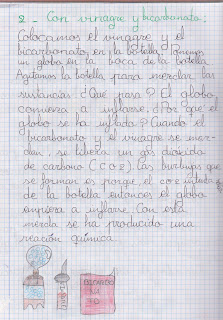 2 - Con vinagre y bicarbonato:
Colocamos el vinagre y el
bicarbonato en la botella. Ponemos
un globo en la boca de la botella.
Agitamos la botella para mezclar las
sustancias ¿Qué pasa? El globo
comienza a inflarse. ¿Por qué el
globo se ha inflado? Cuando el
bicarbonato y el vinagre se mez-
clan, se libera un gas dióxido
de carbono (CO2). Las burbujas que
se forman es porque, el CO2
de la botella entonces el globo
empieza a inflarse. Con esta
mezcla se ha producido una
reación química.
BICARBO
NA
TO